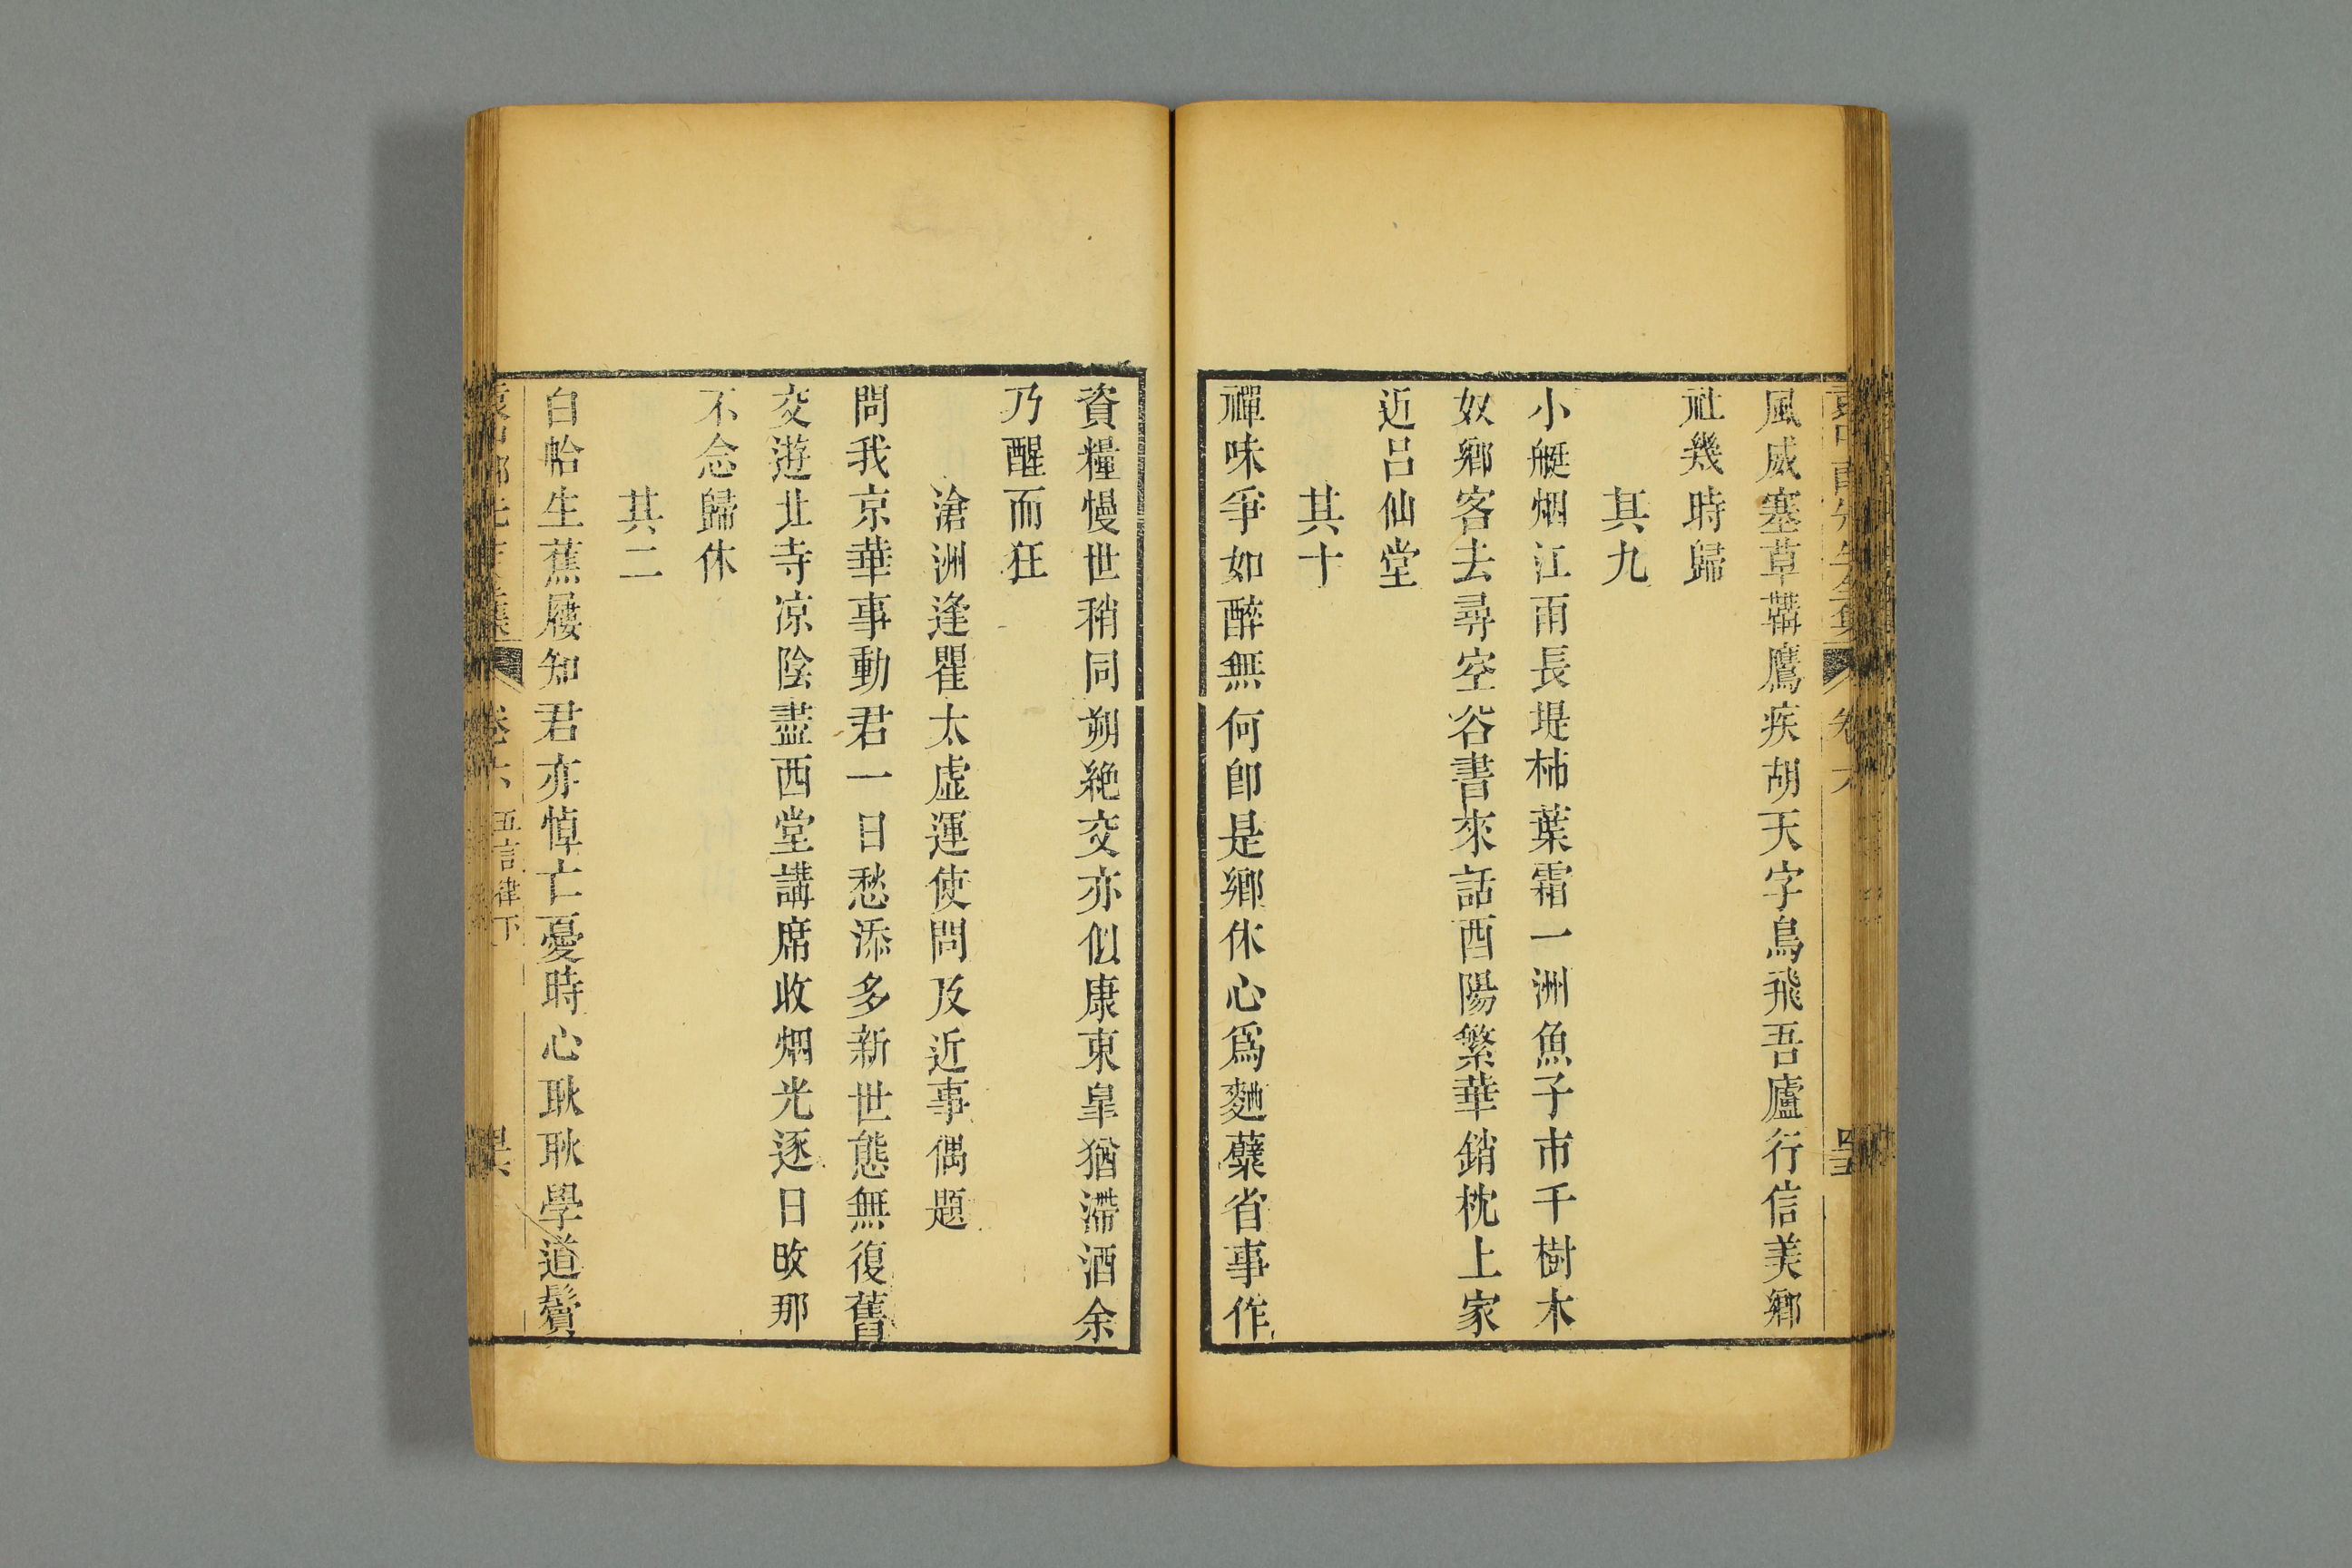 風威塞草鞲鷹疾胡天字鳥飛吾廬行信美鄉
社幾時歸
其九
小艇烟江雨長堤柿葉霜一洲魚子市千樹木
奴鄉客去尋空谷書來話酉陽繁華銷枕上家
近呂仙堂
其十
禪味爭如醉無何卽是鄉休心爲麯蘖省事作
資糧慢世稍同朔絶交亦似康東皐猶滯酒余
乃醒而狂
滄洲逢瞿太虛運使問及近事偶題
問我京華事動君一日愁添多新世態無復舊
交遊北寺凉陰盡西堂講席收烟光逐日敀那
不念歸休
其二
白帢生蕉屨知君亦悼亡憂時心耿耿學道鬢
卷六 五言律下